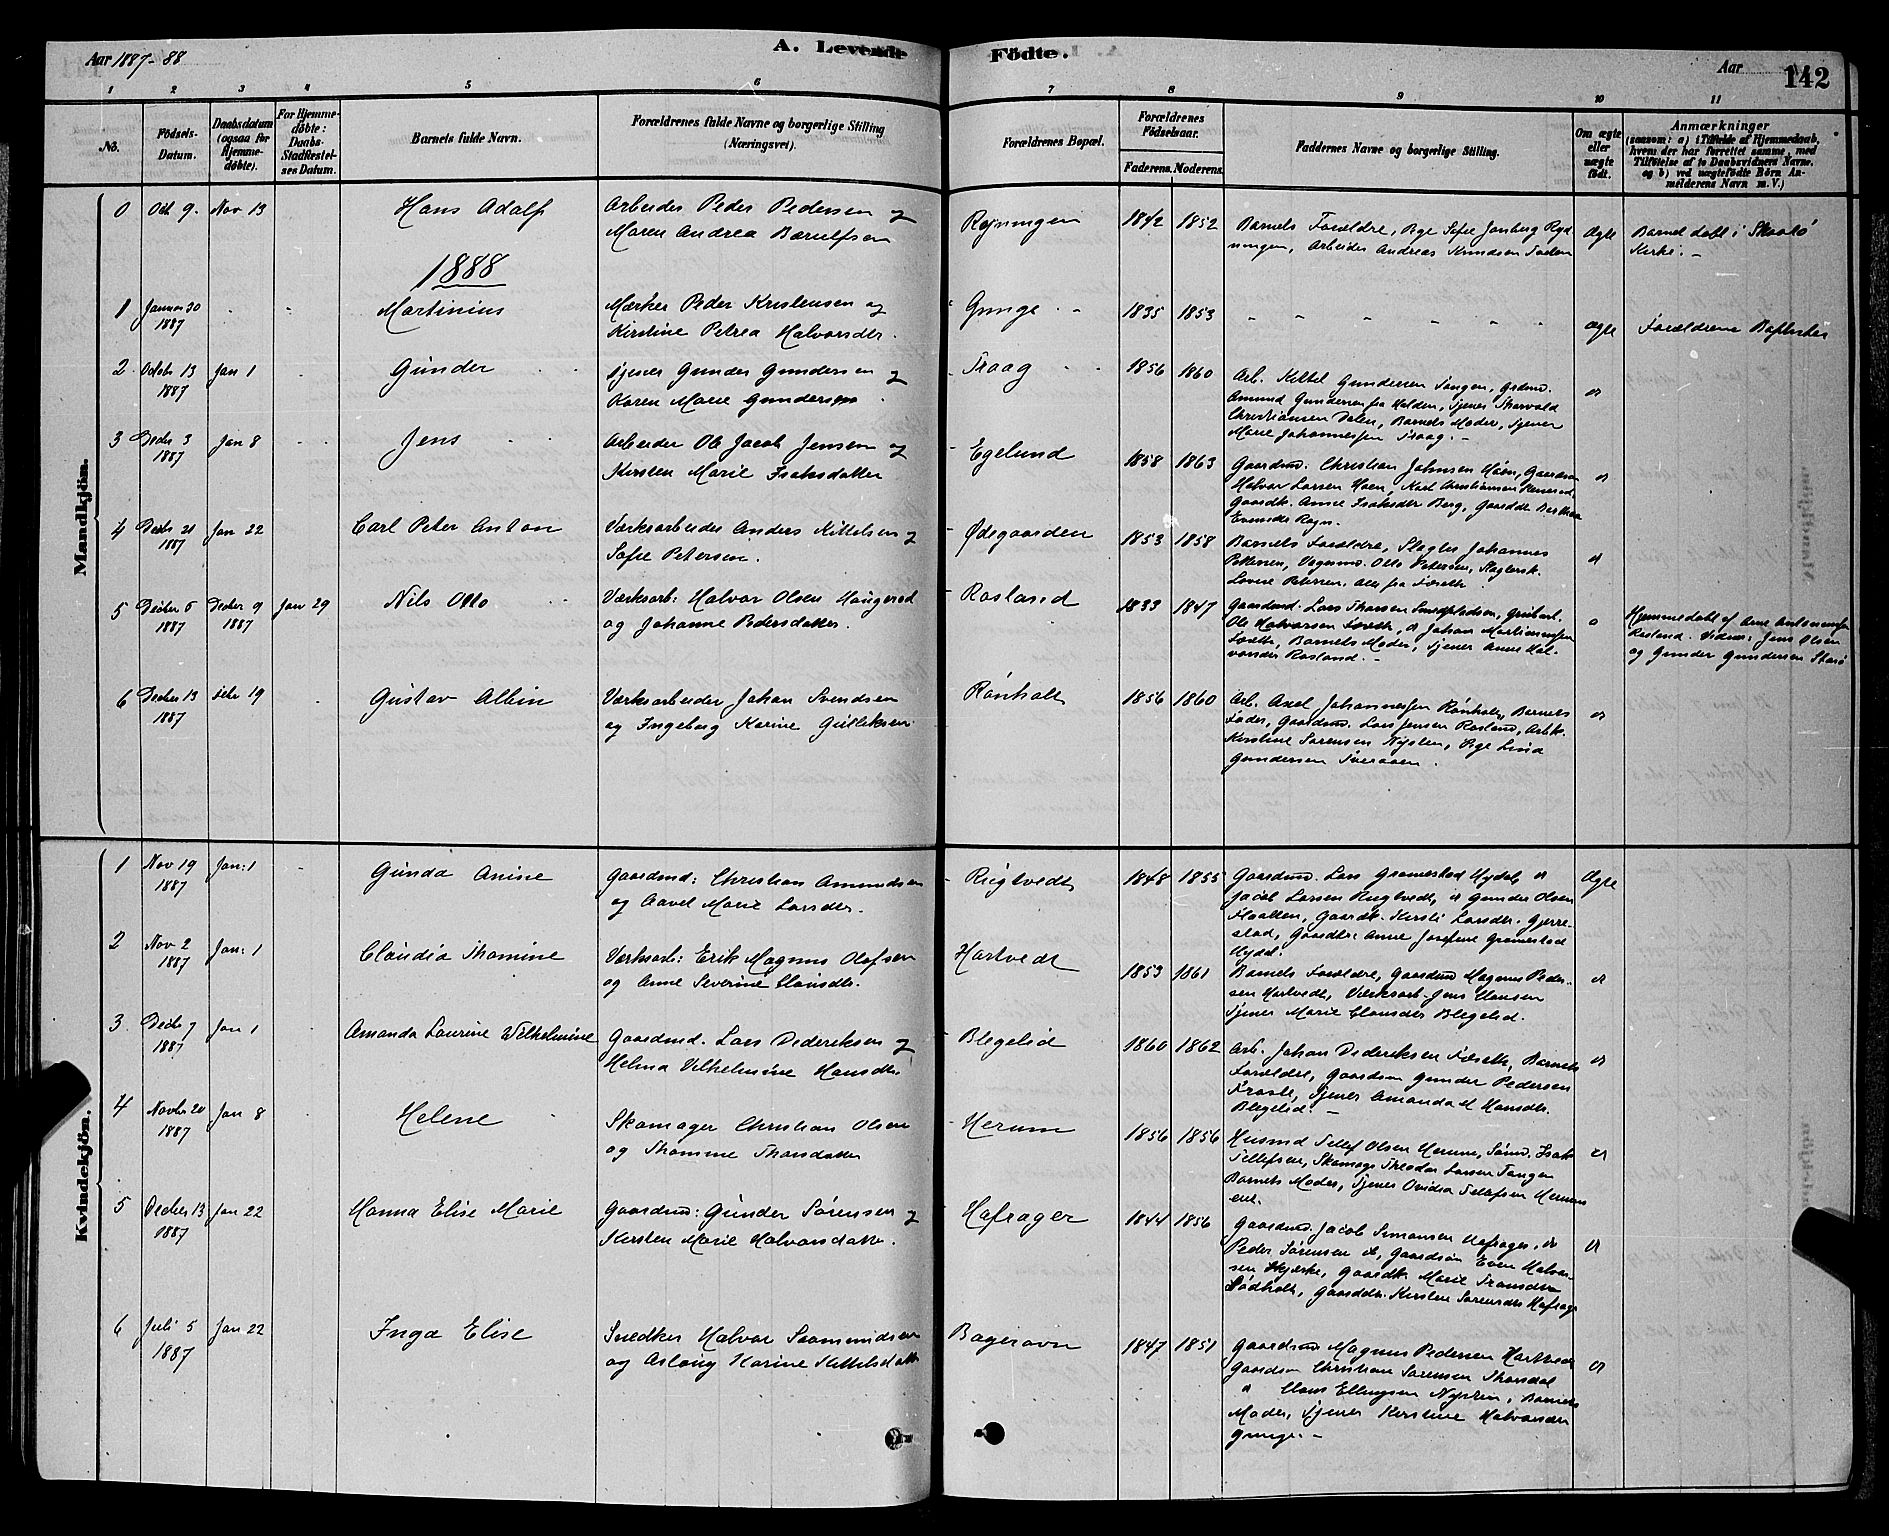 Aar 1887-88
A. Levende Födte.
Aar
142
1 2 3 4 5 6 7 8 9 10 11
No.
Födsels-Datum.
Daabsdatum (ogsaa for Hjemme-döbte).
For Hjemme-döbte: Daabs-Stadfæstel-ses Datum.
Barnets fulde Navn.
Forældrenes fulde Navne og borgerlige Stilling (Næringsvei).
Forældrenes Bopæl.
Forældrenes Födselsaar.
Faderens. Moderens.
Faddernes Navne og borgerlige Stilling.
Om ægte eller uægte födt.
Anmærkninger
(saasom: a) i Tilfælde af Hjemmedaab, hvem der har forrettet samme, med Tilföielse af to Daabsvidners Navne, og b) ved uægtefödte Börn Anmelderens Navn m. V.)
Mandkjön.
0 Oct 9. Nov 13 Hans Adolf
Arbeider Peder Pedersen og
Maren Andrea Bærulfsen
1842 1852
Barnets Forældre, Pige Sofie
Arbeider Andreas Knudsen
Ægte
Barnet döbt i Skaatö
Kirke. -
1888
1 Januar 30
1887
Martinius
Mærker Peder Kristensen og
Kirstine Petrea Halvorsdtr.
Grunge
1835 1853
ægte
Forældrene Baptister
2 Octobr 13 Jan 1
1887
Gunder
Tjener Gunder Gundersen og
Karen Marie Gundersen
Traag
1856 1860
Arb. Kittel Gundersen Tangen, Grdmd.
Amund Gundersen fra Halden, Tjener Thorvald
Christiansen Dalen, Barnets Moder, Tjener
Marie Johannesen Traag. -
3 Decbr 3 Jan 8
1887
Jens
Arbeider Ole Jacob Jensen og
Kirsten Marie Isaksdatter
Egelund
1858 1863
Gaardmd. Christian Johnsen
Halvor Larsen Hoen, Karl Christiansen
Gaardk. Anne Isaksdtr Berg, Gaarddtr Berthe
Evensdtr Rogn.
4 Decbr 21 Jan 22
1887
Carl Peter Anton
Værksarbeider Anders Kittelsen og
Sofie Petersen.
Ødegaarden
1853 1858
Barnets Forældre, Slagter Johannes
Pettersen, Otto Petersen, Slagterk.
Lovise Petersen, alle fra
5 Decbr 5 Decbr 9 Jan 29
1887 1887
Nils Otto
Værksarb: Halvor Olsen Haugerød
og Johanne Pedersdatter.
Rosland
1833 1847
Gaardmd. Lars Thorsen
Ole Halvorsen Johan Martinussen
Barnets Moder, Tjener Anne Hal-
vorsdtr Rosland. -
Hjemmedöbt af Arne Antonsen
Rosland. Vidner, Jens Olsen
og Gunder Gundersen
6 Decbr 13 Febr 19
1887
Gustav Albin
Værksarbeider Johan Svendsen
og Ingeborg Karine Gulleksen
Rønholt
1856 1860
Arb. Axel Johannessen Rønholt, Barnets
Fader, Gaardmd. Lars Jensen Rosland, Arbk.
Kirstine Sørensen Nysten, Pige Lina
Gundersen
Kvindekjön.
1 Nov 19 Jan: 1
1887
Gunda Anine
Gaardmd: Christian Amundsen
og Aavel Marie Larsdtr.
Rugtvedt
1848 1855
Gaardmd. Lars Gromestad Hydal,
Jacob Larsen Rugtvedt, Gunder Olsen
Gaardk. Kirsti Larsdtr. Gjerre-
stad, Gaarddtr. Anne Josefine Gromestad
Hydal
Ægte
2 Nov 2 Jan: 1
1887
Claudia Thomine
Værksarb: Erik Magnus Olofsen
og Anne Severine Clausdtr.
Hartvedt
1853 1861
Barnets Forældre, Gaardmd Magnus Peder-
sen Hartvedt, Værksarb. Jens Clausen
Tjener Marie Clausdtr Blegelid.
3. Decbr 7 Jan 1
1887
Amanda Laurine Wilhelmine
Gaardmd. Lars Dideriksen og
Helma Vilhelmine Hansdtr
Blegelid
1860 1862
Arb. Johan Dideriksen Barnets
Forældre, Gaardsøn Gunder Pedersen
Tjener Amanda M Hansdtr.
Blegelid. -
4 Novbr 20 Jan 8
1887
Helene
Skomager Christian Olsen
og Thomine Thorsdatter
Herum
1856 1856
Husmd Tellef Olsen Herum, Isak
Tellefsen, Skomag Theodor Larsen Tangen
Barnets Moder, Tjener Ovidia Tellefsen Herum
eie.
5 Decbr 13 Jan 22
1887
Hanna Elise Marie
Gaardmd: Gunder Sørensen og
Kirsten Marie Halvorsdatter.
Hafsager
1844 1856
Gaardmd. Jacob Simonsen Hafsager,
Peder Sørensen Gaardsøn Even Halvor-
sen Skjærke, Gaardk. Marie
Gaarddtr. Kirsten Sørensdtr Hafsager
6 Juli 5 Jan 22
1887
Inga Elise
Snedker Halvor Saamundsen
og Aslaug Karine Kittelsdatter
1847 1851
Gaardmd Magnus Pedersen Hartvedt
Gaardsøn Christian Sørensen
Claus Ellingsen Nysten, Barnets
Moder, Tjener Kirstine Halvorsdtr
Grunge. -